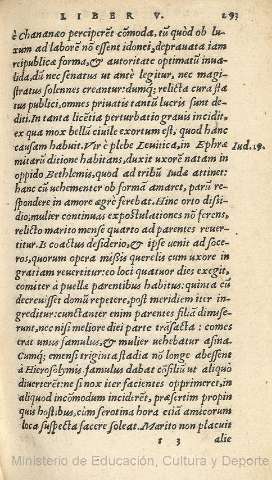 LIBER V. 293
è Chananæo perciperēt cōmoda, tū quòd ob lu-
xum ad laborē nō essent idonei, deprauata iam
reipublica forma, & autoritate optimatū inua-
lida, dū nec senatus ut ante legitur, nec magi-
stratus solennes creantur: dumq; relicta cura sta
tus publici, omnes priuatis tantū lucris sunt de-
diti. In tanta licētia perturbatio grauis incidit,
ex qua mox bellū ciuile exortum est, quod hanc
causam habuit. Vir è plebe Leuitica, in Ephra
mitarū ditione habitans, duxit uxorē natam in
Iud. 19.
oppido Bethlemis, quod ad tribū Iudæ attinet:
hanc cū uehementer ob formā amaret, parū re-
spondere in amore ægrè ferebat. Hinc orto dissi-
dio, mulier continuas expostulationes nō ferens,
relicto marito mense quarto ad parentes reuer-
titur. Is coactus desiderio, & ipse uenit ad soce-
ros, quorum opera missis querelis cum uxore in
gratiam reuertitur: eo loci quatuor dies exegit,
comiter à puellæ parentibus habitus: quinta cū
decreuisset domū repetere, post meridiem iter in-
greditur: cunctanter enim parentes filiā dimise-
runt, nec nisi meliore diei parte trāsacta: comes
erat unus famulus, & mulier uehebatur asina.
Cumq; emensi triginta stadia nō longè abessent
à Hierosolymis famulus dabat cōsiliū ut aliquò
diuerterēt: ne si nox iter facientes opprimeret, in
aliquod incōmodum inciderēt, præsertim propin
quis hostibus, cùm serotina hora etiā amicorum
loca suspecta facere soleat. Marito non placuit
s 3 alie
Ministerio de Educación, Cultura y Deporte